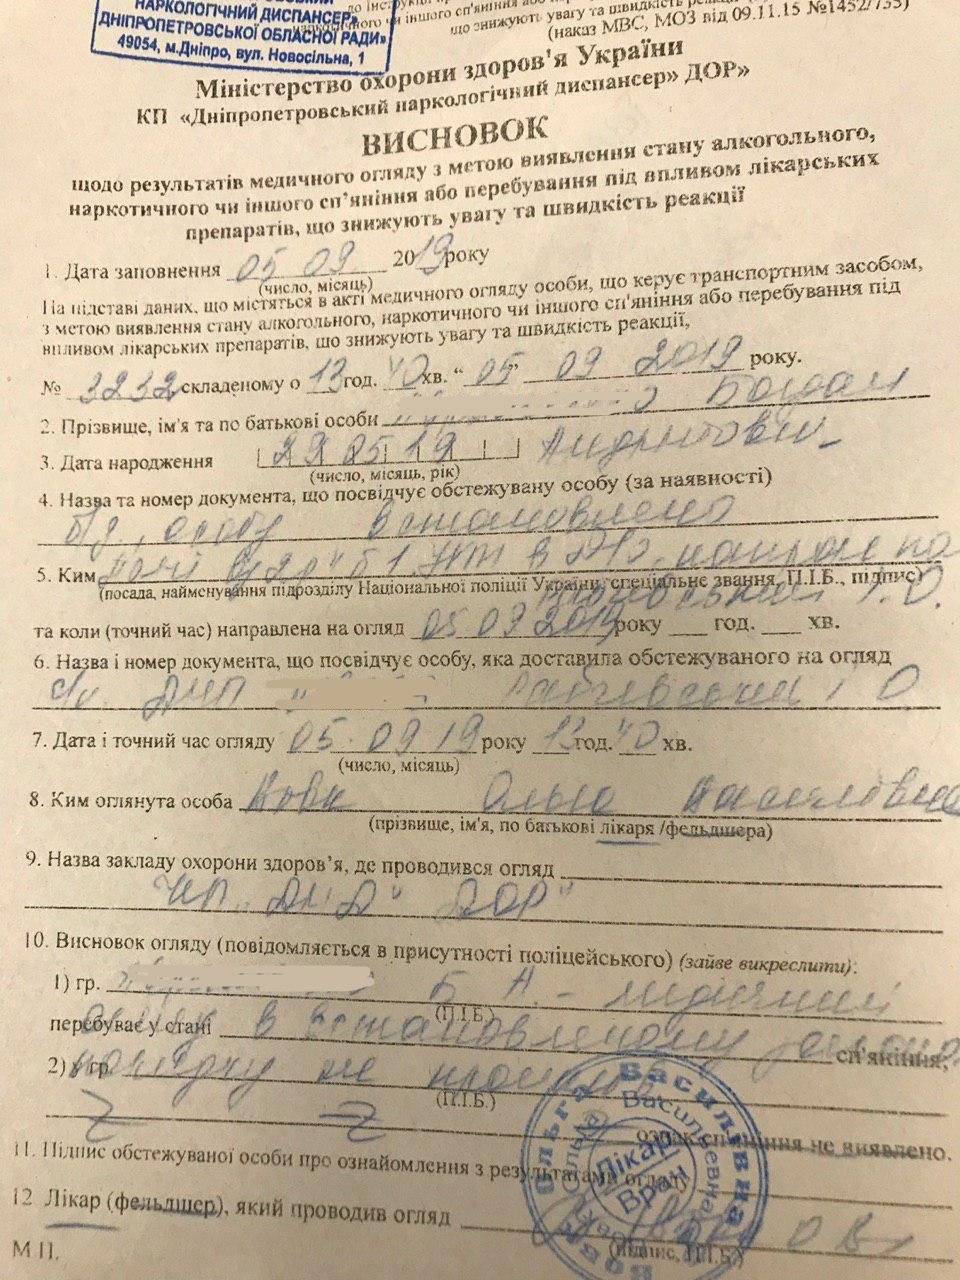 НАРКОЛОГІЧНИЙ ДИСПАНСЕР»
ДНІПРОПЕТРОВСЬКОЇ ОБЛАСНОЇ РАДИ»
49054, м.Дніпро, вул. Новосільна, 1
до Інструкції
чи іншого сп'яніння або
що знижують увагу та швидкість реакції
(наказ МВС, МОЗ від 09.11.15 №1452/735)
Міністерство охорони здоров'я України
КП «Дніпропетровський наркологічний диспансер» ДОР»
ВИСНОВОК
щодо результатів медичного огляду з метою виявлення стану алкогольного,
наркотичного чи іншого сп’яніння або перебування під впливом лікарських
препаратів, що знижують увагу та швидкість реакції
1. Дата заповнення 05 09 2019 року
(число, місяць)
На підставі даних, що містяться в акті медичного огляду особи, що керує транспортним засобом,
з метою виявлення стану алкогольного, наркотичного чи іншого сп'яніння або перебування під
впливом лікарських препаратів, що знижують увагу та швидкість реакції,
№ 3232 складеному о 13 год. 40 хв. “05” 09 2019 року.
2. Прізвище, ім'я та по батькові особи Богдан
3. Дата народження 29 05 19
(число, місяць, рік)
4. Назва та номер документа, що посвідчує обстежувану особу (за наявності)
б/д, особу встановлено
5. Ким
(посада, найменування підрозділу Національної поліції України, спеціальне звання, П.І.Б., підпис)
та коли (точний час) направлена на огляд 05 09 2019 року ___ год. ___ хв.
6. Назва і номер документа, що посвідчує особу, яка доставила обстежуваного на огляд
ДНП І О
7. Дата і точний час огляду 05 09 19 року 13 год. 40 хв.
(число, місяць)
8. Ким оглянута особа Вовк Ольга Василівна
(прізвище, ім'я, по батькові лікаря /фельдшера)
9. Назва закладу охорони здоров’я, де проводився огляд
КП „ДНД” ДОР”
10. Висновок огляду (повідомляється в присутності поліцейського) (зайве викреслити):
1) гр. Б А. – медичний
(П.І.Б.)
перебуває у стані огляд в встановленому законом сп'яніння,
2) гр. порядку не пройшов
(П.І.Б.)
ознак сп'яніння не виявлено.
11. Підпис обстежуваної особи про ознайомлення з результатами огляду
12 Лікар (фельдшер), який проводив огляд Вовк О В
(підпис, П.І.Б.)
М П.
Вовк Ольга Василівна
Вовк Ольга Васильевна
Лікар
Врач